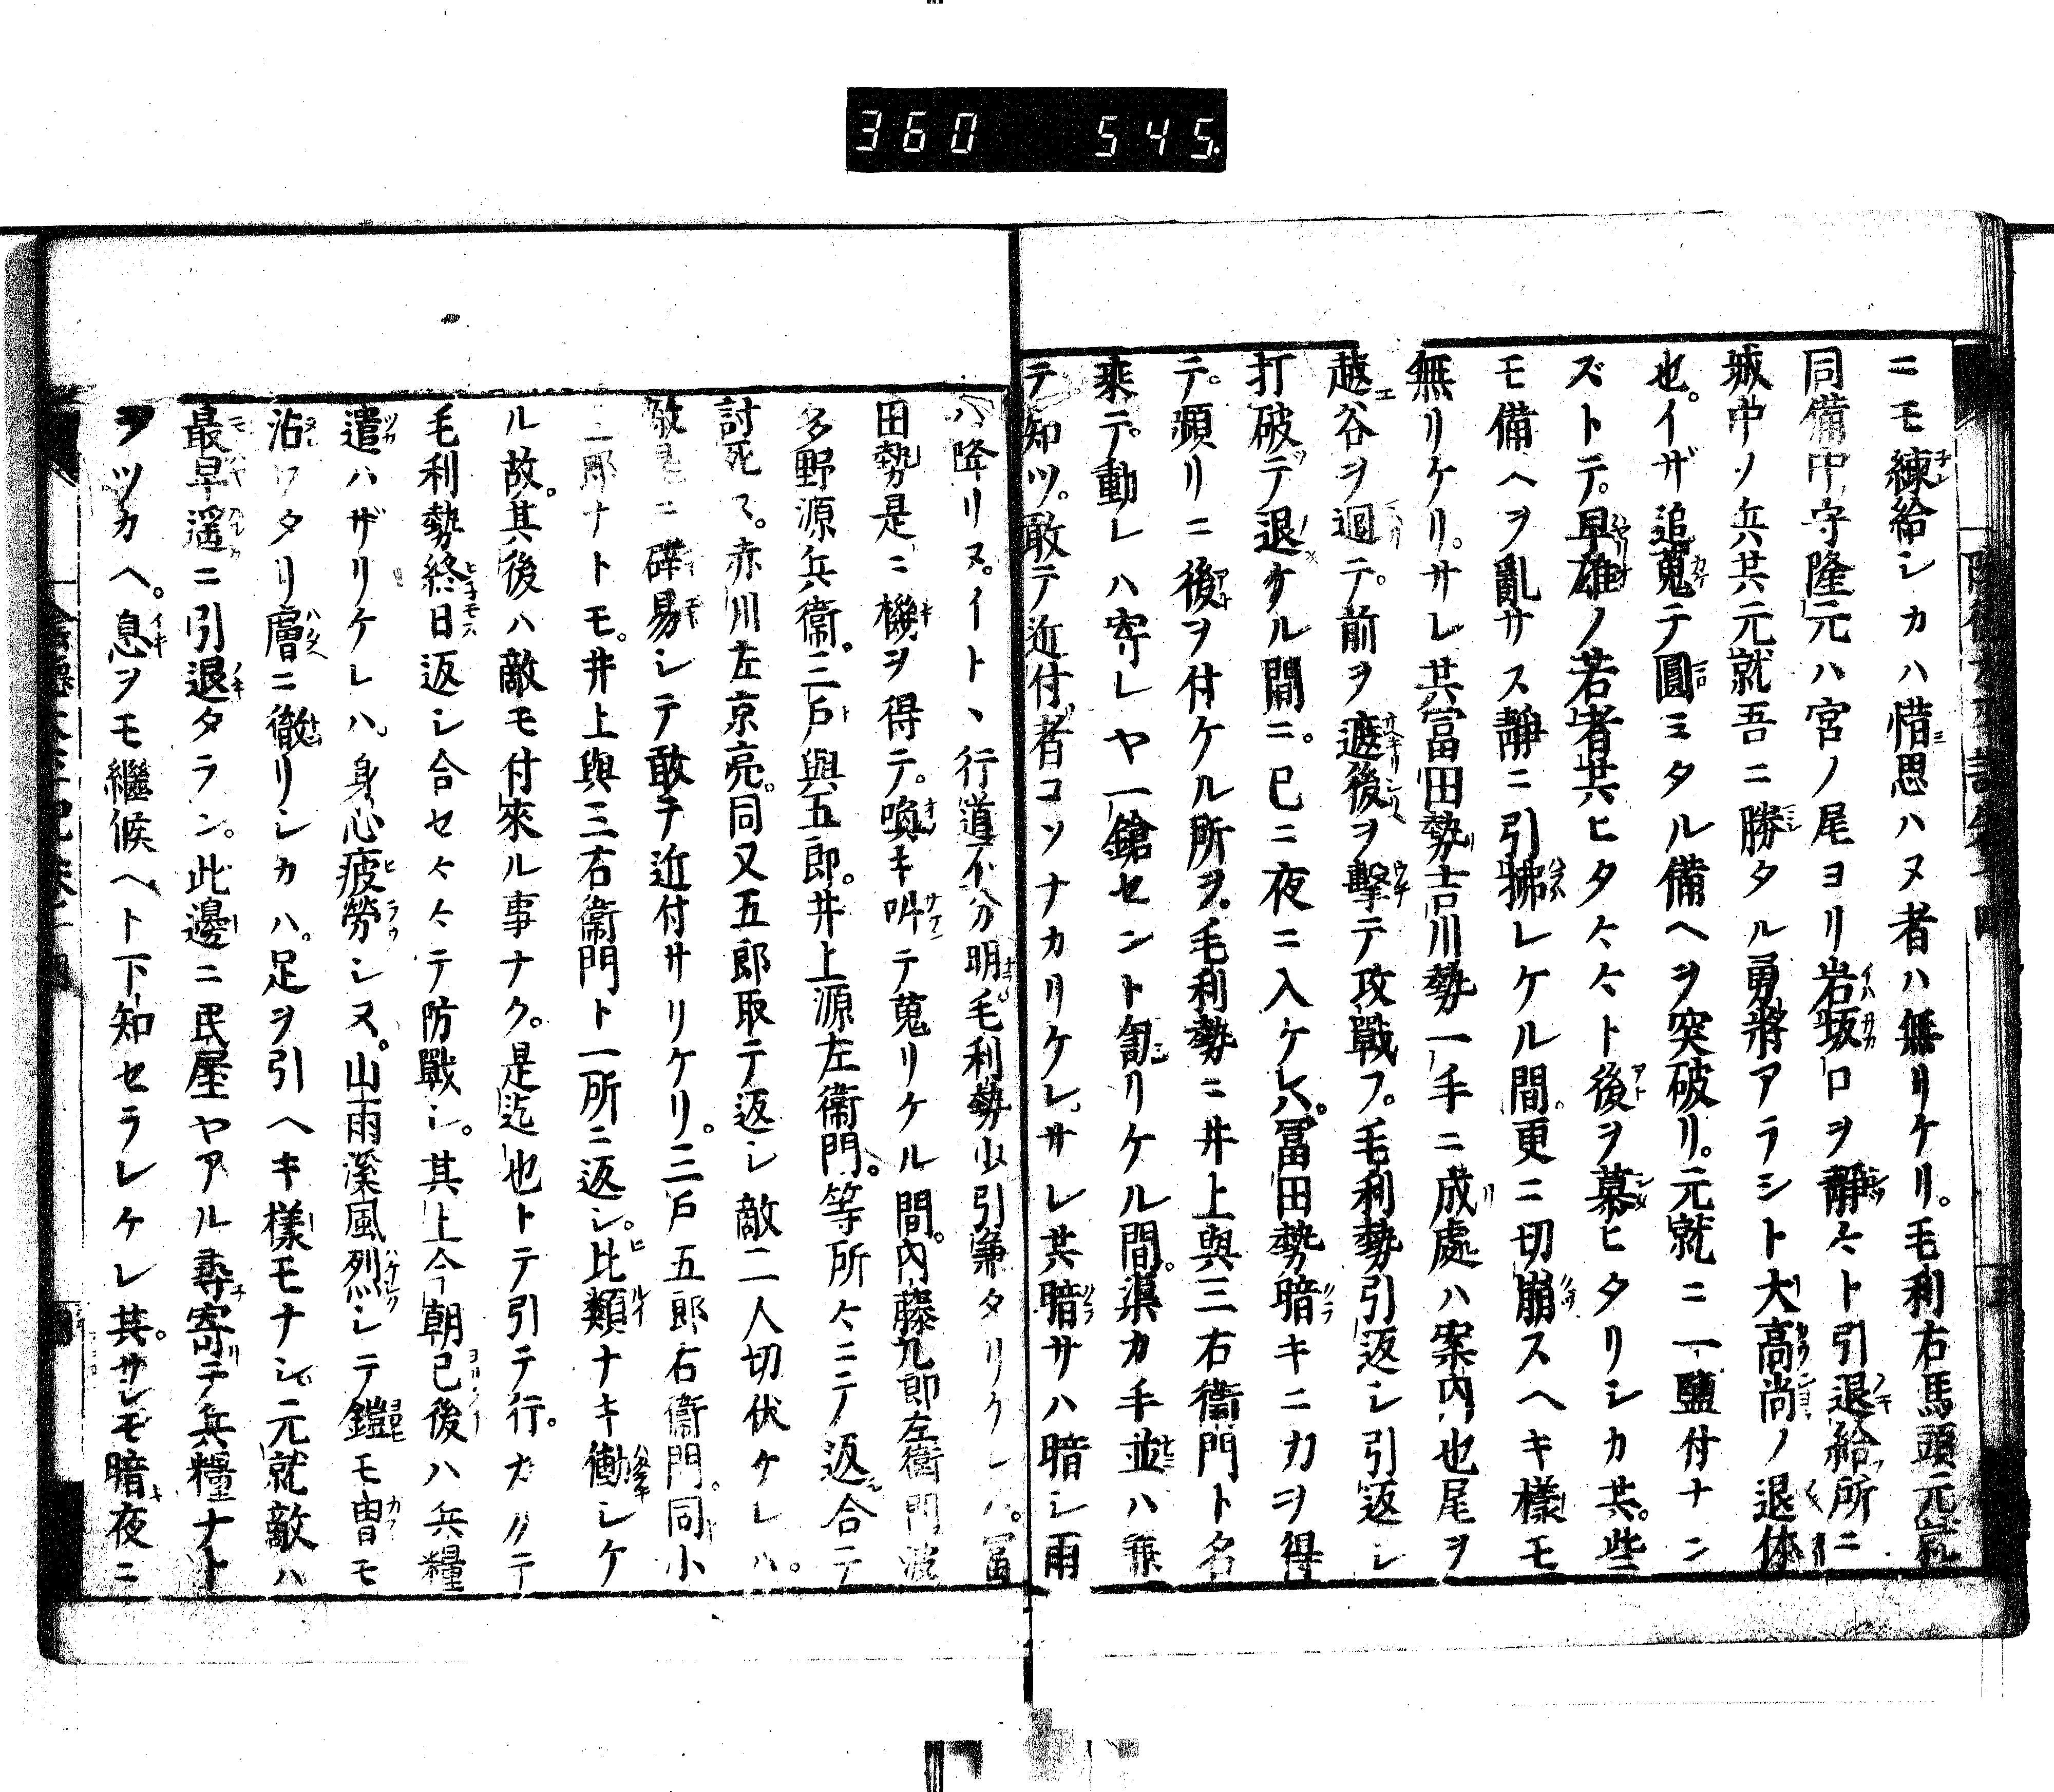 360 545.
ニモ練給シカハ惜思ハヌ者ハ無リケリ。毛利右馬頭元就
同備中守隆元ハ宮ノ尾ヨリ岩坂口ヲ静々ト引退給所ニ
城中ノ兵共元就吾ニ勝タル勇將アラシト大高尚ノ退体
也。イザ追蒐テ圓ミタル備ヘヲ突破リ。元就ニ一鹽付ナン
ズトテ。早雄ノ若者共ヒタ々々ト後ヲ慕ヒタリシカ共。些
モ備ヘヲ亂サス静ニ引拂レケル間。更ニ切崩スヘキ様モ
無リケリ。サレ共冨田勢吉川勢一手ニ成處ハ案内也尾ヲ
越谷ヲ廻テ。前ヲ遮後ヲ撃テ攻戰フ。毛利勢引返シ引返シ
打破テ退ケル間ニ。已ニ夜ニ入ケレハ。冨田勢暗キニ力ヲ得
テ。頻リニ後ヲ付ケル所ヲ。毛利勢ニ井上與三右衞門ト名
乘テ。動レハ寄レヤ一鎗セント訇リケル間。渠カ手並ハ兼
テ知ツ。敢テ近付者コソナカリケレ。サレ共暗サハ暗シ雨
ハ降リヌ。イトヽ行道不分明。毛利勢少引兼タリケレハ。冨
田勢是ニ機ヲ得テ。喚キ叫テ蒐リケル間。内藤九郎左衞門波
多野源兵衞。三戸與五郎。井上源左衞門。等所々ニテ返合テ
討死ス。赤川左京亮。同又五郎取テ返シ敵二人切伏ケレハ。
敵是ニ辟易シテ敢テ近付サリケリ。三戸五郎右衞門。同小
二郎ナトモ。井上與三右衞門ト一所ニ返シ。比類ナキ働シケ
ル故。其後ハ敵モ付來ル事ナク。是迄也トテ引テ行。カクテ
毛利勢終日返シ合セ々々テ防戰シ。其上今朝已後ハ兵糧
遣ハザリケレハ。身心疲勞シヌ。山雨溪風烈シテ鎧モ冑モ
沾ワタリ膚ニ徹リシカハ。足ヲ引ヘキ様モナシ。元就敵ハ
最早遥ニ引退タラン。此邊ニ民屋ヤアル尋寄テ兵糧ナト
ヲツカヘ。息ヲモ繼候ヘト下知セラレケレ共。サレモ暗夜ニ